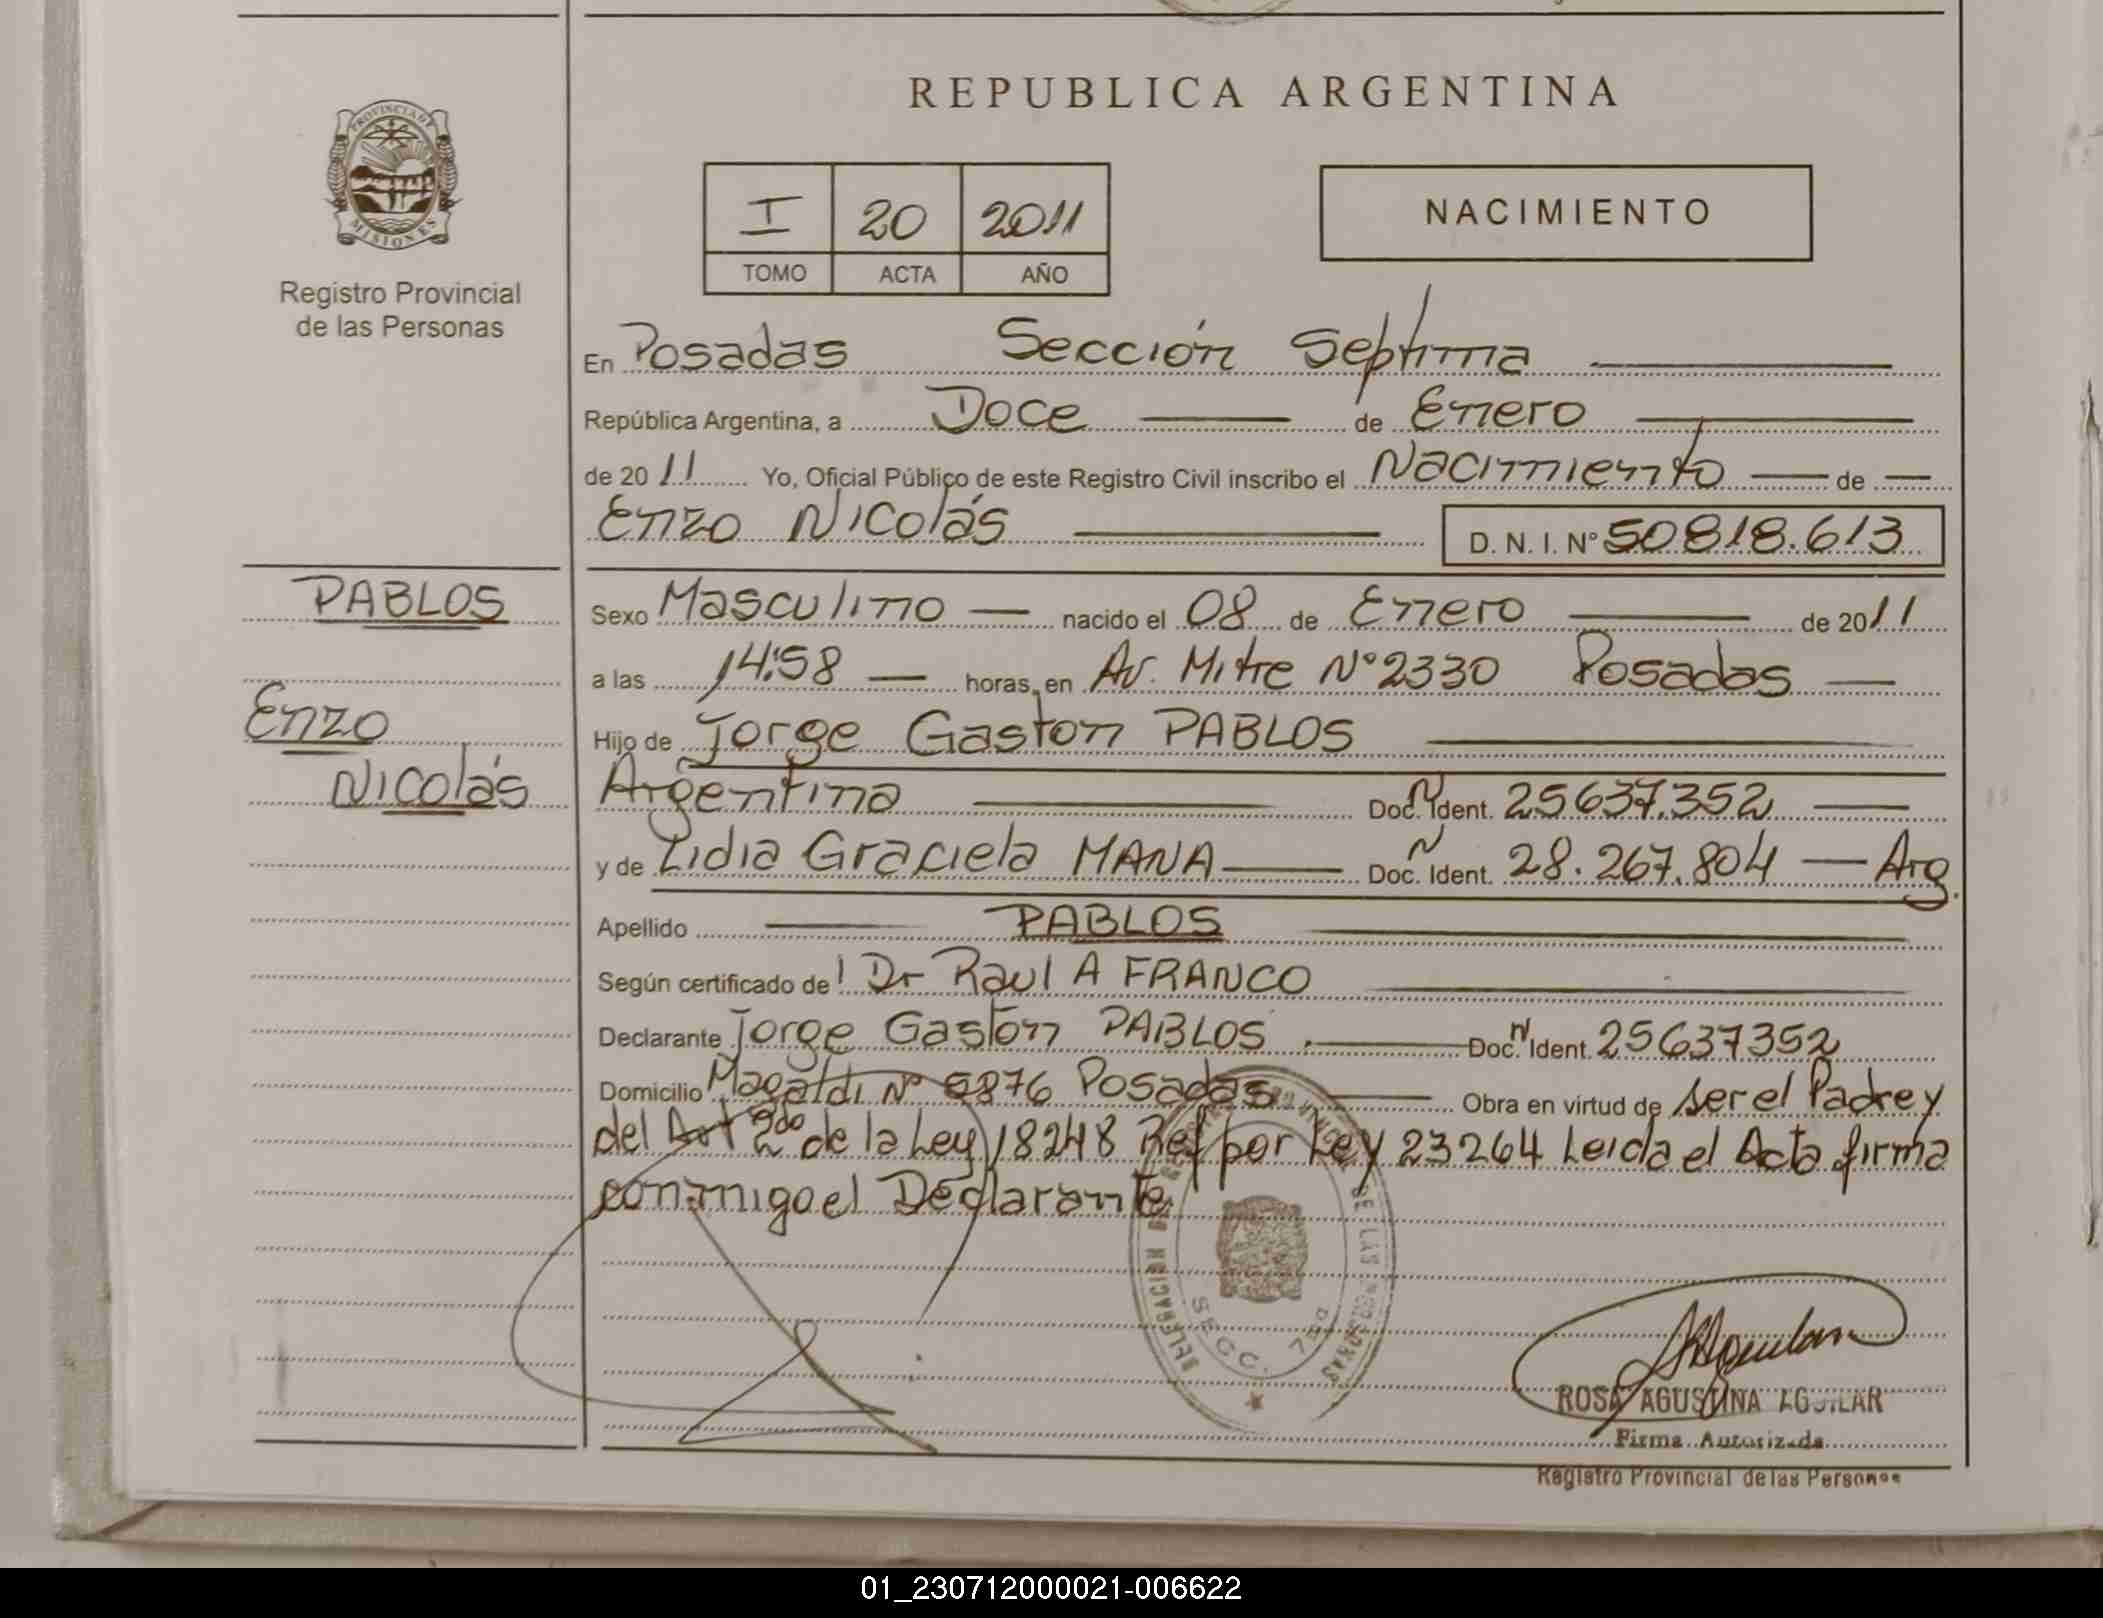 REPUBLICA ARGENTINA
PROVINCIA DE
MISIONES
Registro Provincial
de las Personas
I 20 2011
TOMO ACTA AÑO
NACIMIENTO
En Posadas Sección Septima
República Argentina, a Doce de Enero
de 2011 Yo, Oficial Público de este Registro Civil inscribo el Nacimiento de
Enzo Nicolás D. N. I. N° 50818.613
PABLOS
Enzo
Nicolás
Sexo Masculino nacido el 08 de Enero de 2011
a las 14:58 horas, en Av. Mitre N° 2330 Posadas
Hijo de Jorge Gaston PABLOS
Argentina Doc. N Ident. 25637.352
y de Lidia Graciela MANA Doc. N Ident. 28.267.804 Arg.
Apellido PABLOS
Según certificado de Dr Raul A FRANCO
Declarante Jorge Gastón PABLOS Doc. N Ident. 25637352
Domicilio Magaldi N° 5876 Posadas Obra en virtud de ser el Padre y
del Art 2do de la Ley 18248 Ref por Ley 23264 Leida el Acta firma
conmigo el Declarante
DELEGACION DE LAS PERSONAS
SECC. 7ma
ROSA AGUSTINA AGUILAR
Firma Autorizada
Registro Provincial de las Personas
01_230712000021-006622